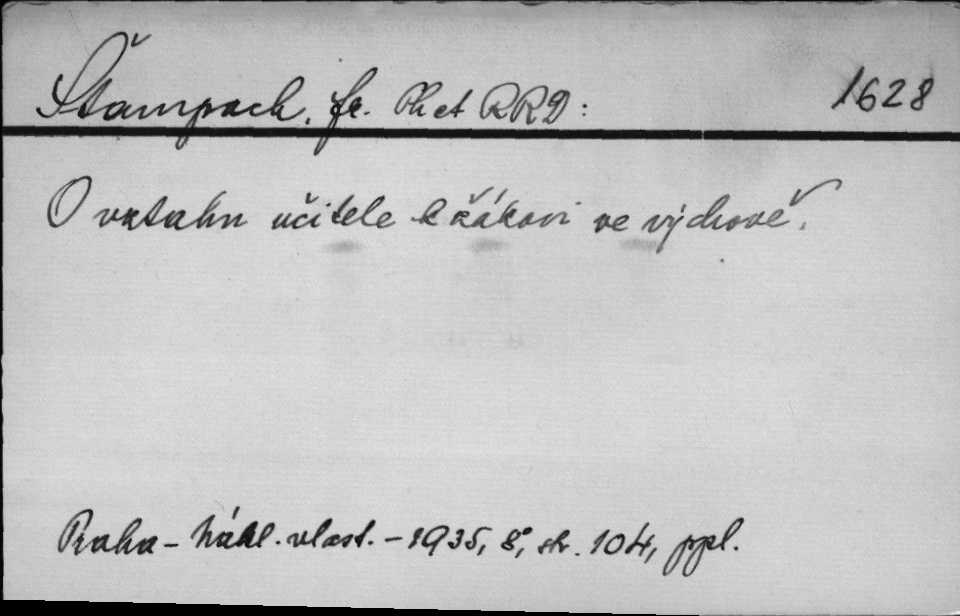 Štampach, fr. Ph et RRD: 1628
O vztahu učitele k žákovi ve výchově.
Praha – Nákl. vlast. – 1935, 8°, str. 104, ppl.